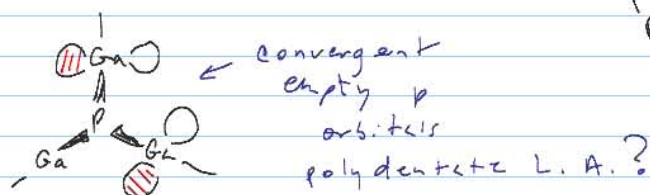 Ga
P
Ga
Ga
convergent
empty p
orbitals
polydentate L. A.?